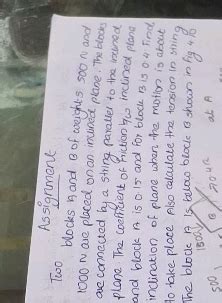 Assignment
Two blocks A and B of weights 500 N and
1000 N are placed on an inclined plane. The blocks
are connected by a string parallel to the inclined
plane The coefficient of friction b/w inclined plane
and block A is 0.15 and for block B is 0.4 Find
inclination of plane when the motion is about
to take place Also calculate the tension in string
The block A is below block B shown in fig
at A